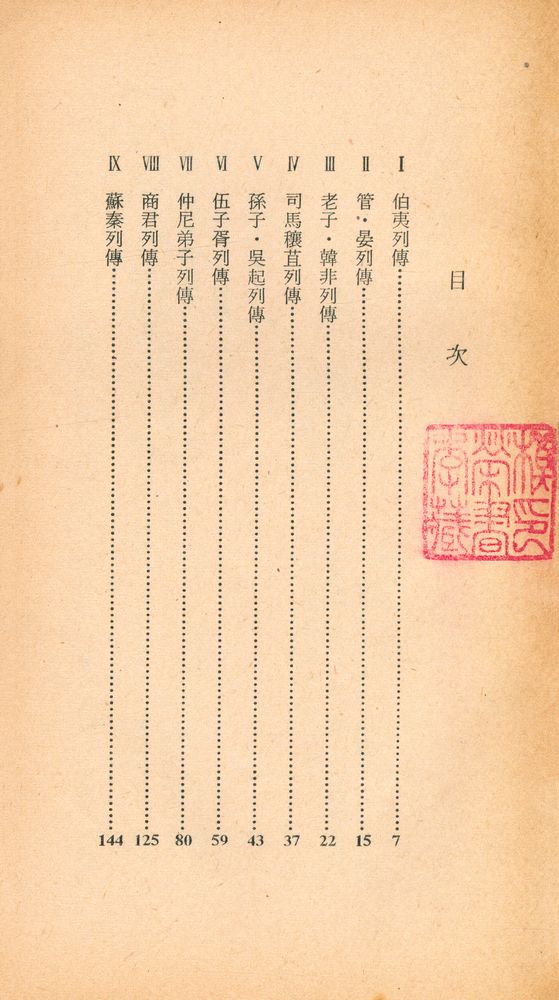 目次
I 伯夷列傳 7
II 管・晏列傳 15
III 老子・韓非列傳 22
IV 司馬穰苴列傳 37
V 孫子・吳起列傳 43
VI 伍子胥列傳 59
VII 仲尼弟子列傳 80
VIII 商君列傳 125
IX 蘇秦列傳 144